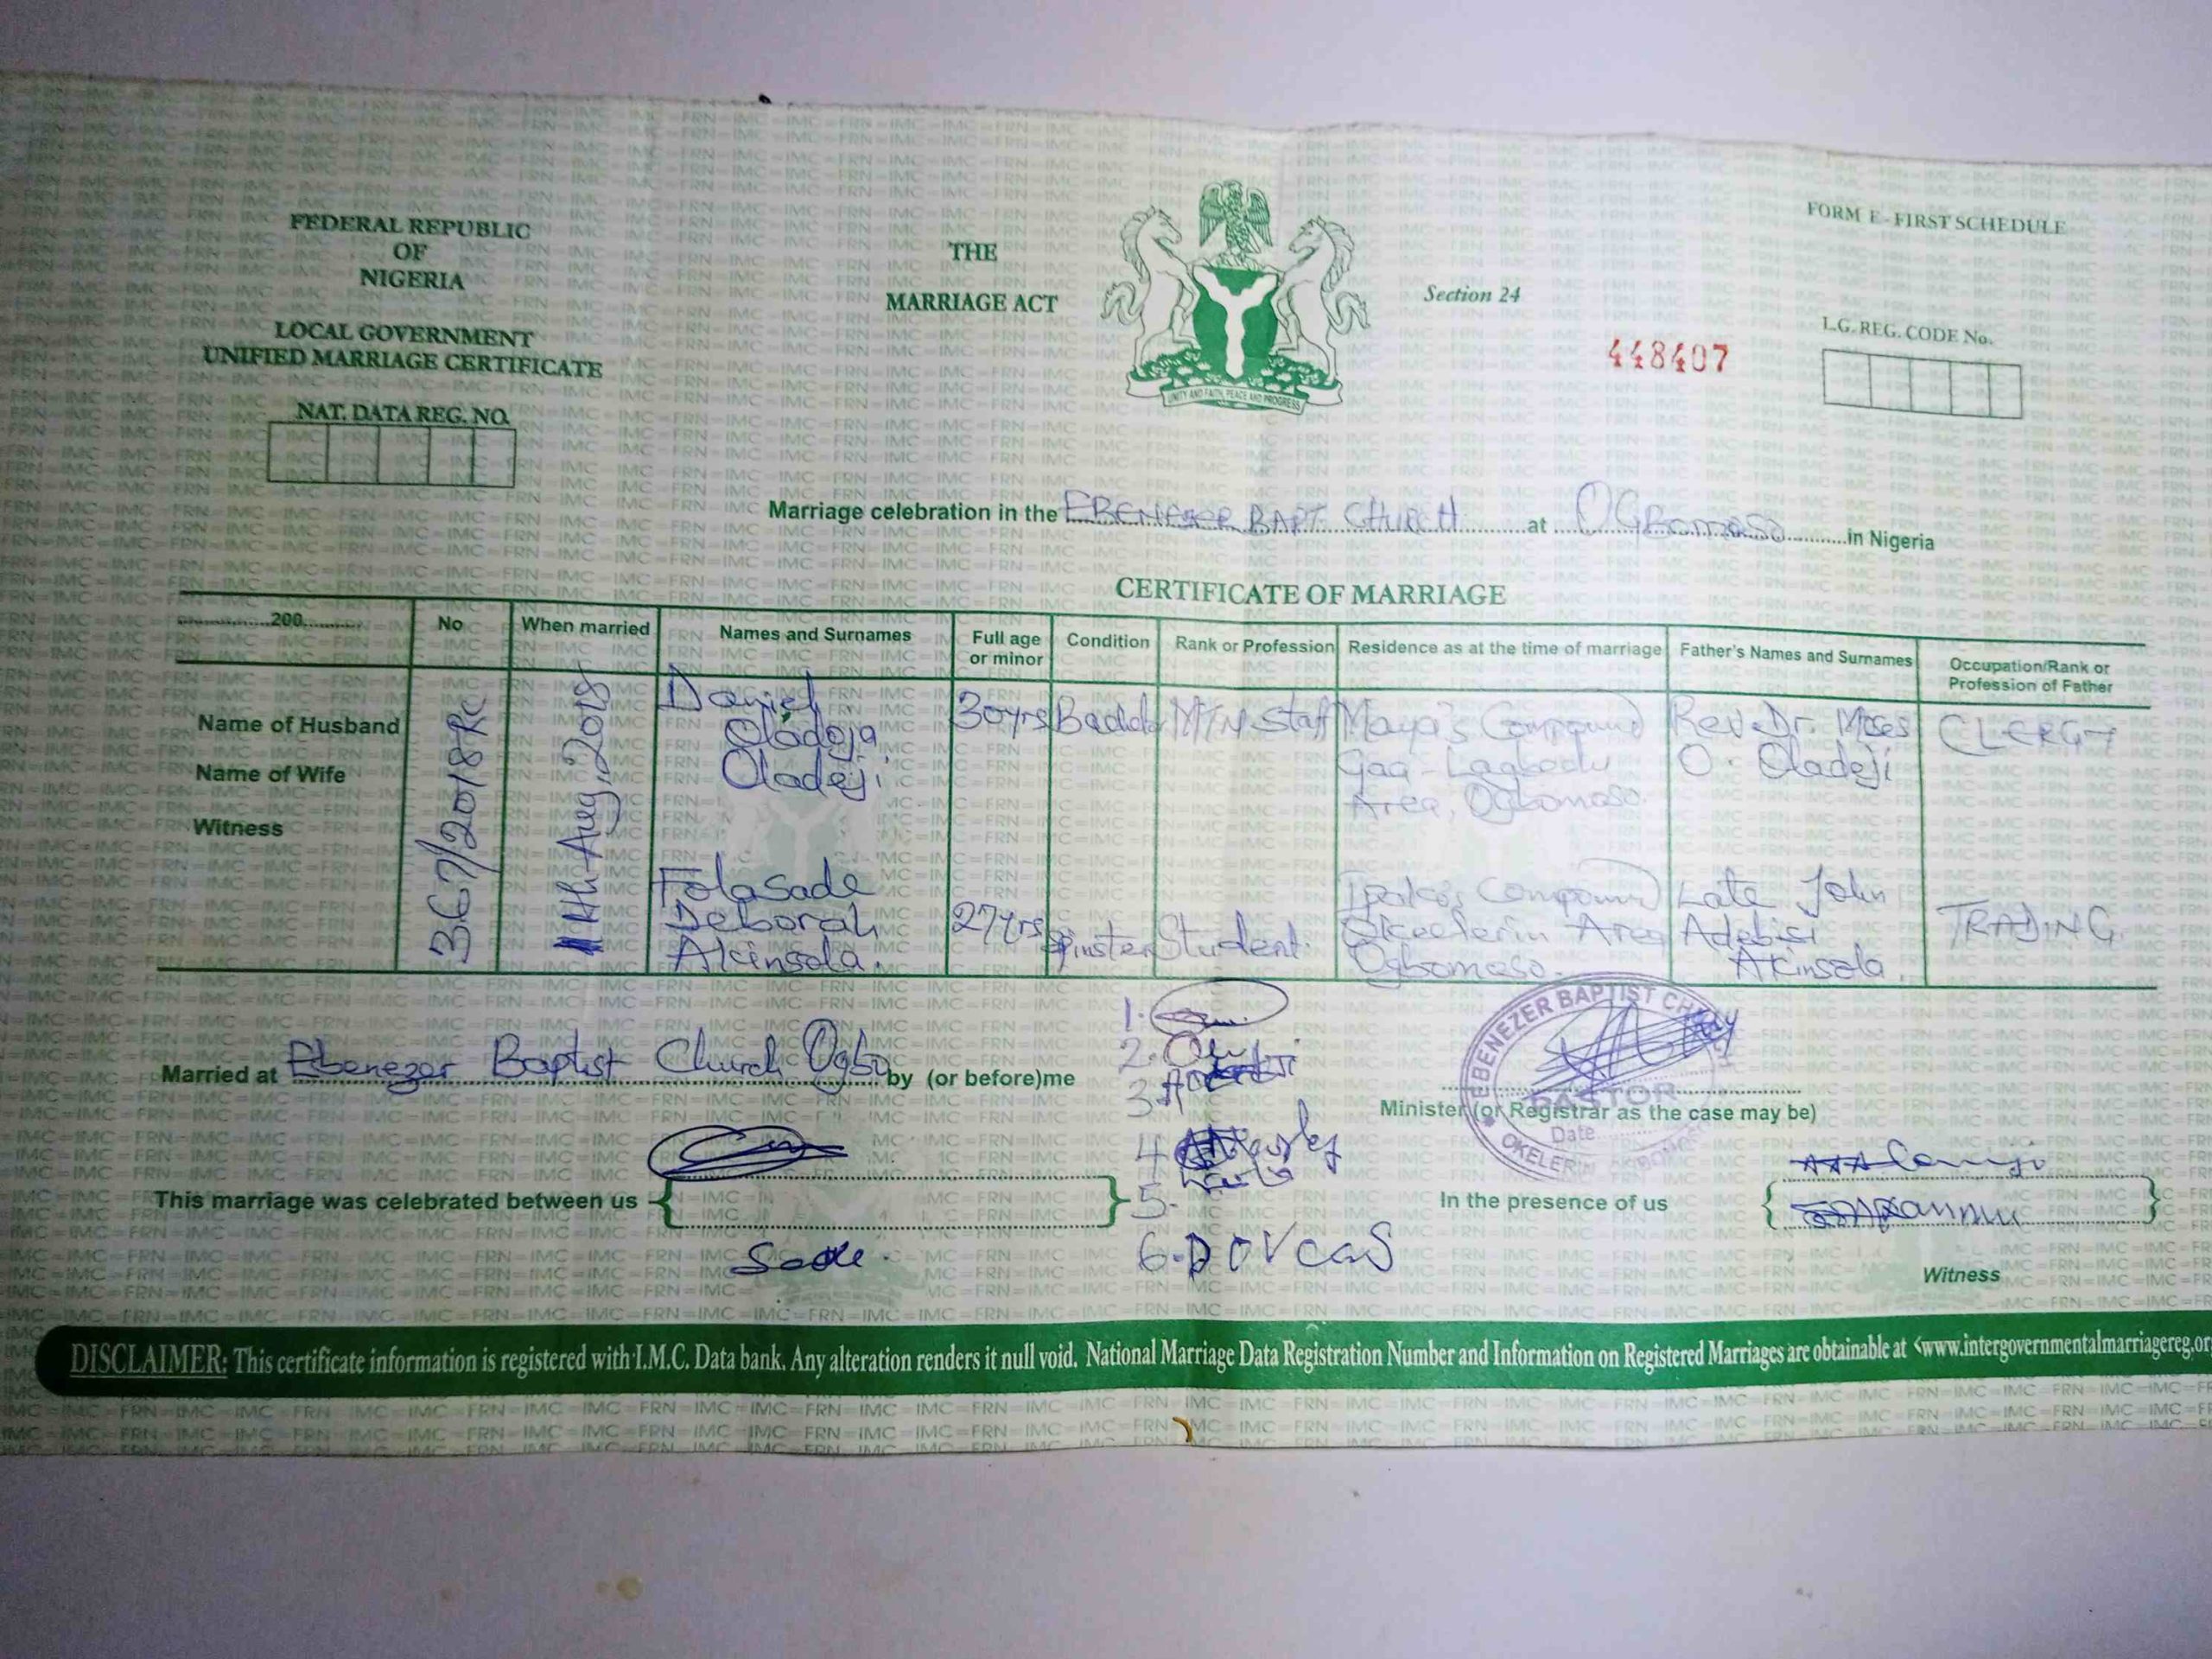 FEDERAL REPUBLIC
OF
NIGERIA
LOCAL GOVERNMENT
UNIFIED MARRIAGE CERTIFICATE
NAT. DATA REG. NO.
THE
MARRIAGE ACT
UNITY AND FAITH, PEACE AND PROGRESS
Section 24
448407
FORM E - FIRST SCHEDULE
L.G. REG. CODE No.
Marriage celebration in the EBENEZER BAPT. CHURCH at OGBOMOSO in Nigeria
CERTIFICATE OF MARRIAGE
200
No
When married
Names and Surnames
Full age
or minor
Condition
Rank or Profession
Residence as at the time of marriage
Father's Names and Surnames
Occupation/Rank or
Profession of Father
Name of Husband
Name of Wife
Witness
367/2018RC
11th Aug, 2018
Daniel
Oladoja
Oladeji
30yrs
MTN Staff
Maya's Compound
Gaa-Lagbedu
Area, Ogbomoso.
Rev. Dr. Moses
O. Oladeji
CLERGY
Folasade
Deborah
Akinsola.
27yrs
Spinster
Student.
Compound
Area
Ogbomoso.
Late John
Adebisi
Akinsola.
TRADING.
Married at Ebenezer Baptist Church Ogbo by (or before)me
1.
2.
3.
4.
5.
6. DOVCAS
EBENEZER BAPTIST CHURCH
PASTOR
Date
OKELERIN
Minister (or Registrar as the case may be)
This marriage was celebrated between us
Sade.
In the presence of us
Witness
DISCLAIMER: This certificate information is registered with I.M.C. Data bank. Any alteration renders it null void. National Marriage Data Registration Number and Information on Registered Marriages are obtainable at <www.intergovernmentalmarriagereg.or